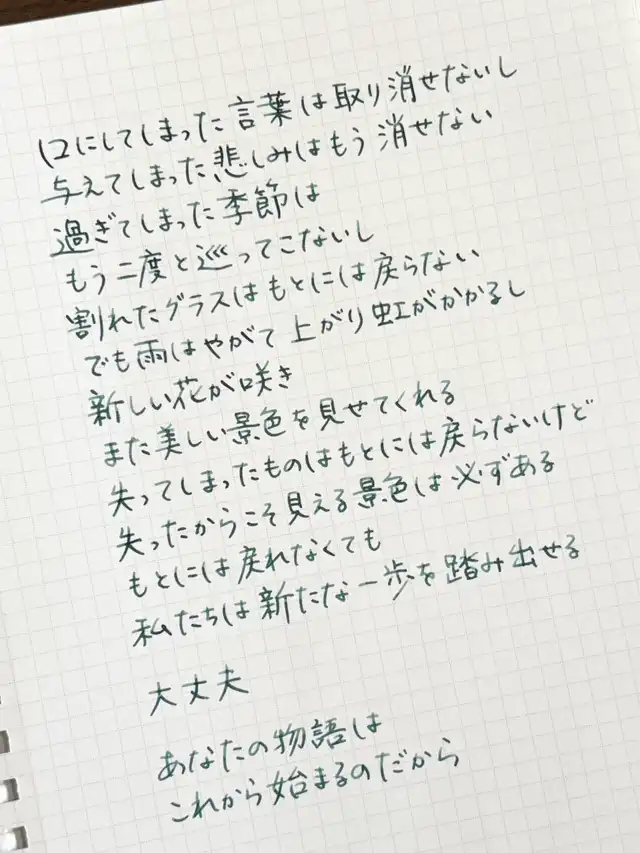 口にしてしまった言葉は取り消せないし
与えてしまった悲しみはもう消せない
過ぎてしまった季節は
もう二度と巡ってこないし
割れたグラスはもとには戻らない
でも雨はやがて上がり虹がかかるし
新しい花が咲き
また美しい景色を見せてくれる
失ってしまったものはもとには戻らないけど
失ったからこそ見える景色は必ずある
もとには戻れなくても
私たちは新たな一歩を踏み出せる
大丈夫
あなたの物語は
これから始まるのだから